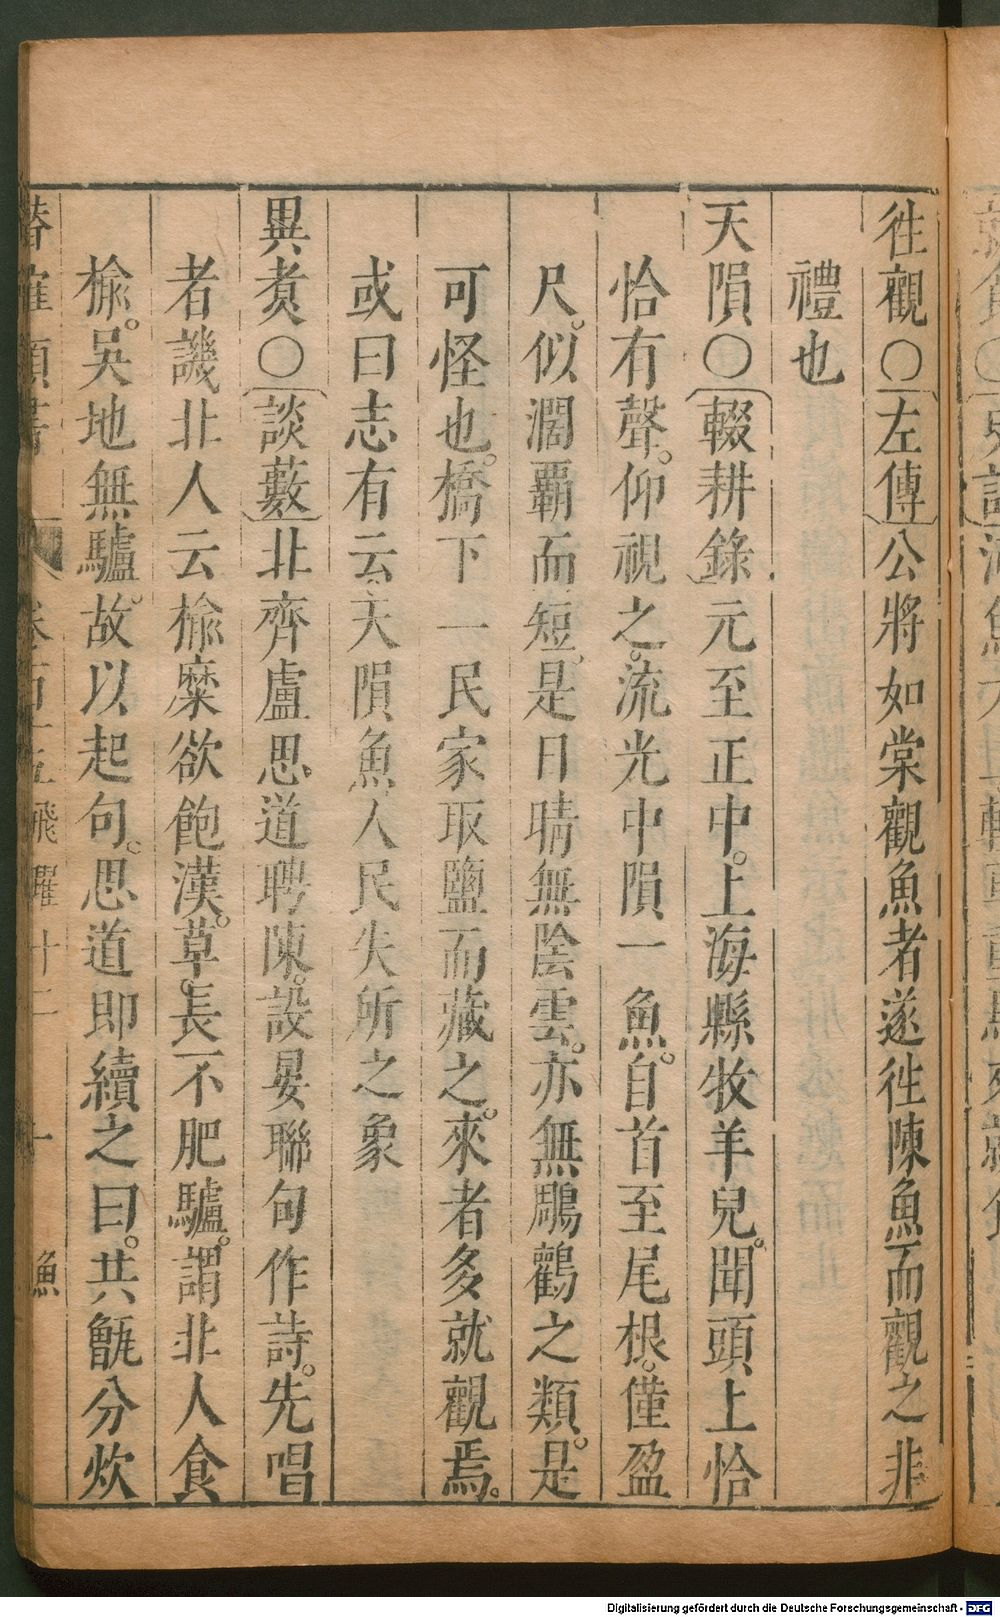 徃觀○左傳公將如棠觀魚者遂徃陳魚而觀之非
禮也
天隕○輟耕錄元至正中。上海縣牧羊兒。聞頭上恰
恰有聲。仰視之。流光中隕一魚。自首至尾根。僅盈
尺。似濶霸而短。是日晴無陰雲。亦無鵰鸛之類。是
可怪也。橋下一民家取鹽而藏之。來者多就觀焉。
或曰志有云天隕魚人民失所之象
異煑○談藪北齊盧思道聘陳。設晏聯句作詩。先唱
者譏北人云楡糜欲飽漢。草長不肥驢。謂北人食
楡。吳地無驢。故以起句。思道即續之曰。共甑分炊
飛躍 十二 魚
Digitalisierung gefördert durch die Deutsche Forschungsgemeinschaft - DFG